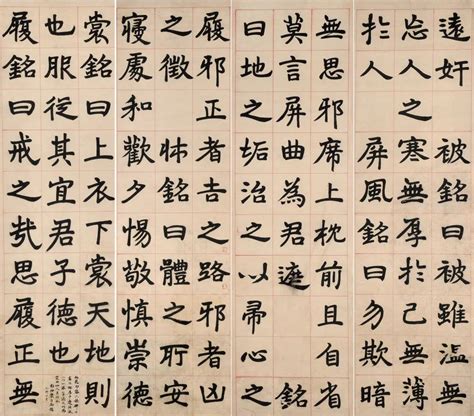 遠奸 被銘曰被雖溫無
忘人之寒無厚於己無薄
於人 屏風銘曰勿欺暗
無思邪席上枕前且自省
莫言屏曲為君遮 銘
曰地之垢治之以帚心之
履邪正者吉之路邪者凶
之徵 牀銘曰體之所安
寑處和歡夕惕敬慎崇德
裳銘曰上衣下裳天地則
也服從其宜君子德也
履銘曰戒之哉思履正無